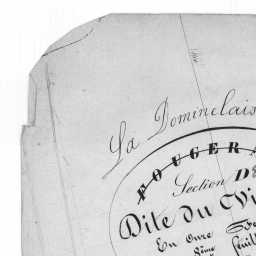 La Dominelais
FOUGERA
Section D
Dite du Vi
En onze Fe
5ème feuil